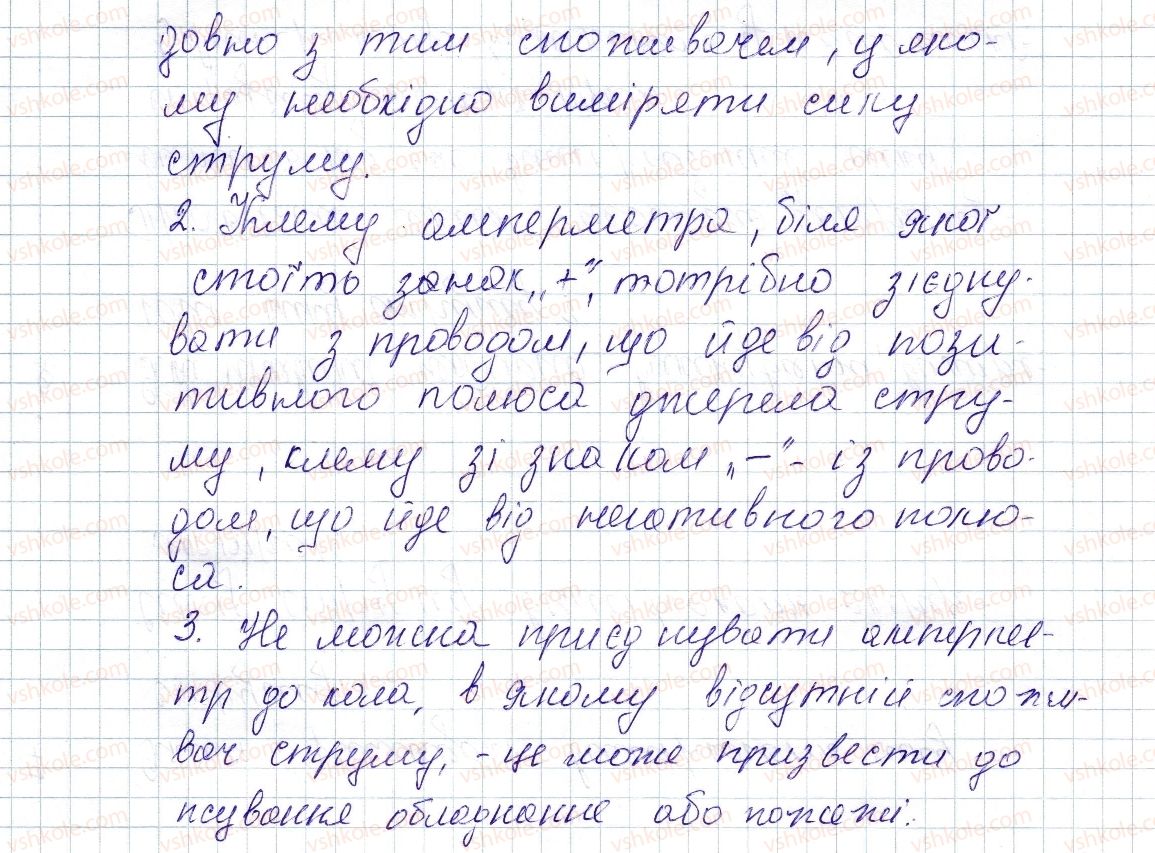 довно з тим споживачем, у яко-
му необхідно виміряти силу
струму.
2. Клему амперметра, біля якої
стоїть занак „+“, потрібно зієдну-
вати з проводом, що йде від пози-
тивного полюса джерела стру-
му, клему зі знаком „-“ - із прово-
дом, що йде від негативного полю-
са.
3. Не можна приєднувати амперме-
тр до кола, в якому відсутній спожи-
вач струму, - це може призвести до
псування обладнання або пожежі.